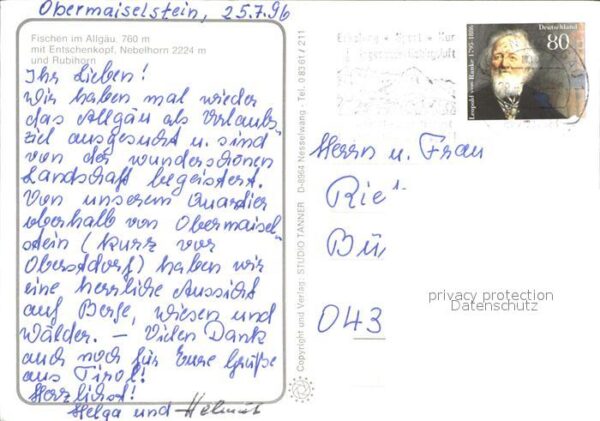 Obermaiselstein, 25.7.96
Fischen im Allgäu, 760 m
mit Entschenkopf, Nebelhorn 2224 m
und Rubihorn
Ihr Lieben!
Wir haben mal wieder
das Allgäu als Urlaubs-
ziel ausgesucht u. sind
von der wunderschönen
Landschaft begeistert.
Von unserem Quartier
oberhalb von Obermaisel-
stein (kurz vor
Oberstdorf) haben wir
eine herrliche Aussicht
auf Berge, Wiesen und
Wälder. – Vielen Dank
auch noch für Eure Grüße
aus Tirol!
Herzlichst!
Helga und Helmut
Copyright und Verlag: STUDIO TANNER D-8964 Nesselwang · Tel. 0 83 61 / 211
Erholung · Sport · Kur
Deutschland
80
Leopold von Ranke 1795-1886
Herrn u. Frau
Rie
Bü
043
privacy protection
Datenschutz